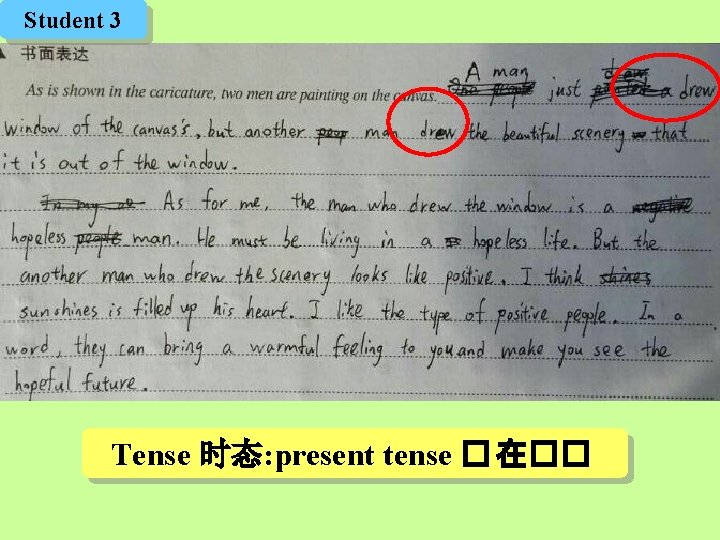 Student 3
书面表达
As is shown in the caricature, two men are painting on the canvas. A man just drew
window of the canvas's, but another man drew the beautiful scenery that
it is out of the window.
As for me, the man who drew the window is a
hopeless man. He must be living in a hopeless life. But the
another man who drew the scenery looks like positive. I think
sunshines is filled up his heart. I like the type of positive people. In a
word, they can bring a warmful feeling to you and make you see the
hopeful future.
Tense 时态: present tense �在��